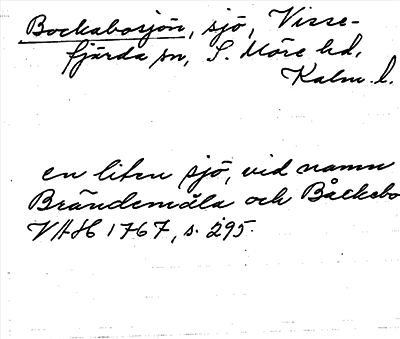 Bockabosjön, sjö, Visse-
fjärda sn, S. Möre hd,
Kalm. l.
en liten sjö, vid namn
Brändemåla och Backebo
VAH 1767, s. 295.